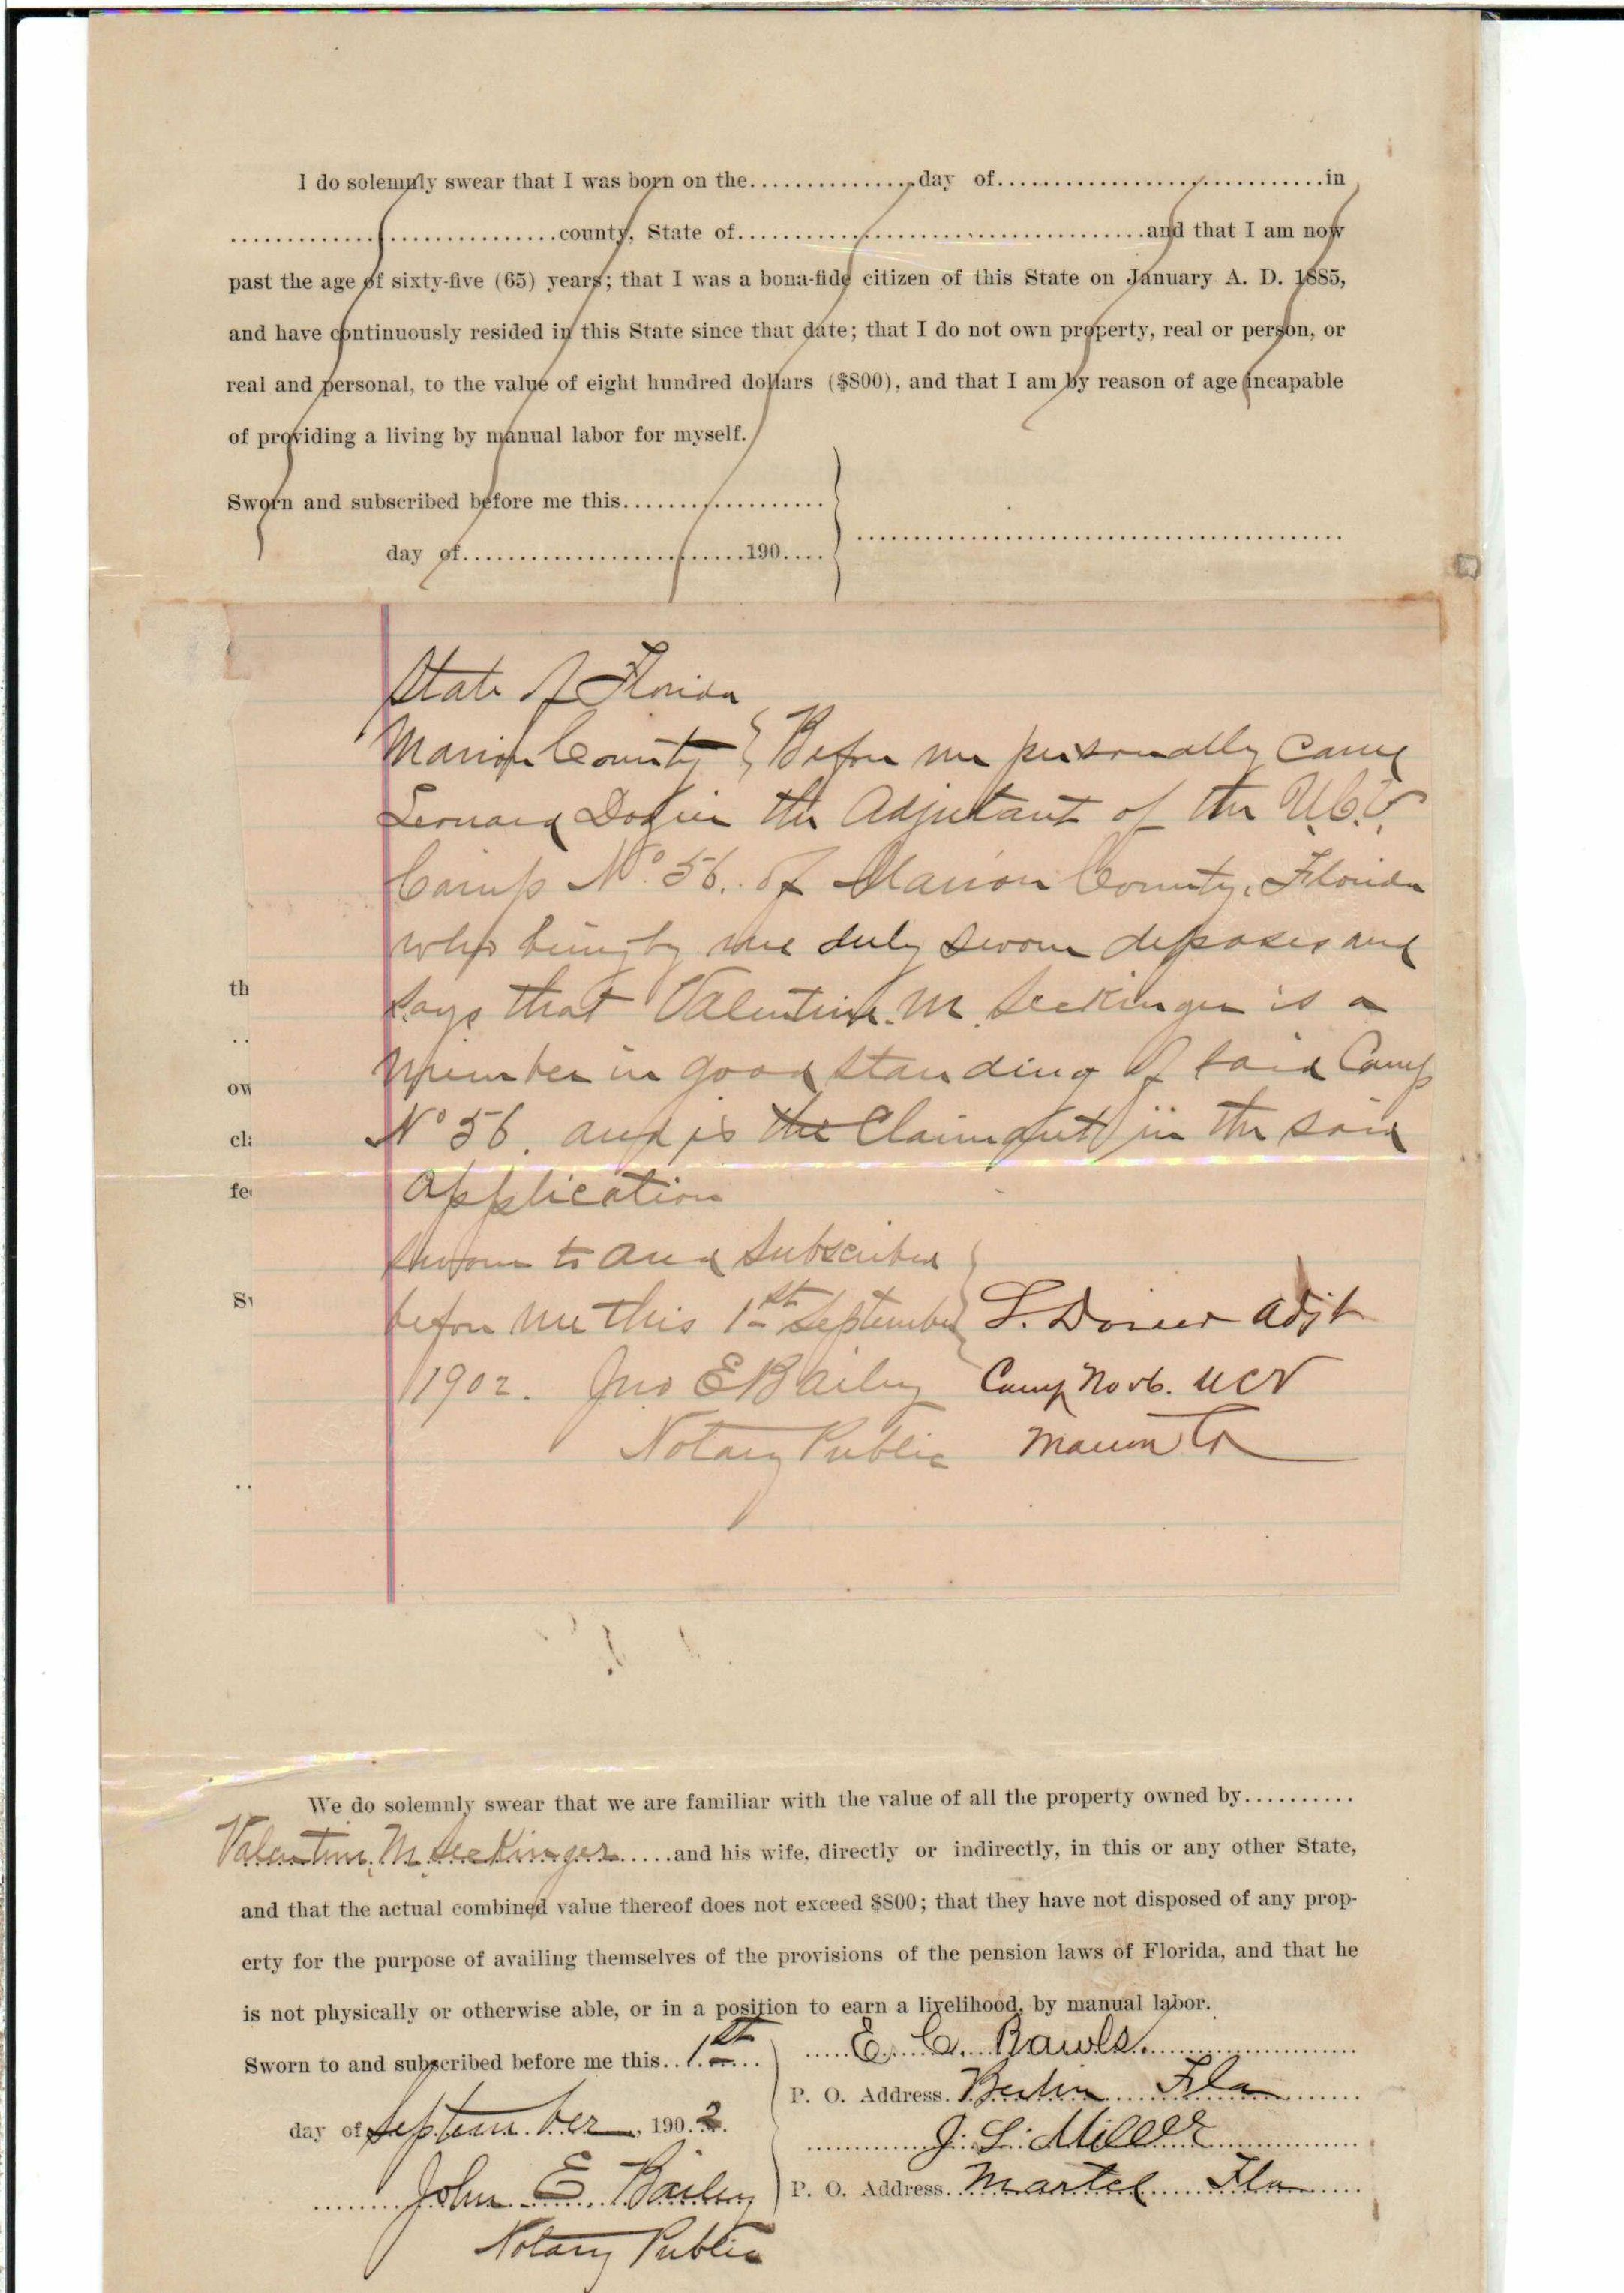 I do solemnly swear that I was born on the................day of................................in
................................county, State of........................................and that I am now
past the age of sixty-five (65) years; that I was a bona-fide citizen of this State on January A. D. 1885,
and have continuously resided in this State since that date; that I do not own property, real or person, or
real and personal, to the value of eight hundred dollars ($800), and that I am by reason of age incapable
of providing a living by manual labor for myself.
Sworn and subscribed before me this....................
day of............................190....
State of Florida
Marion County } Before me personally came
Leonard Dozier the Adjutant of the U.C.V.
Camp No. 56. of Marion County, Florida
who being by me duly sworn deposes and
th
says that Valentine. M. Seckinger is a
..
member in good standing of said Camp
ow
No 56. and is the Claimant in the said
cla
Application
fe
Sworn to and Subscribed
before me this 1st September } L. Dozier Adjt
1902. Jno E Bailey Camp No 56. UCV
Notary Public Marion Co
..
We do solemnly swear that we are familiar with the value of all the property owned by..........
Valentine, M, Seckinger.....and his wife, directly or indirectly, in this or any other State,
and that the actual combined value thereof does not exceed $800; that they have not disposed of any prop-
erty for the purpose of availing themselves of the provisions of the pension laws of Florida, and that he
is not physically or otherwise able, or in a position to earn a livelihood, by manual labor.
E. C. Rawls.
Sworn to and subscribed before me this..1st...
P. O. Address. Berlin Fla
day of September, 1902.
J. L. Miller
John E. Bailey
P. O. Address. Martel Fla
Notary Public